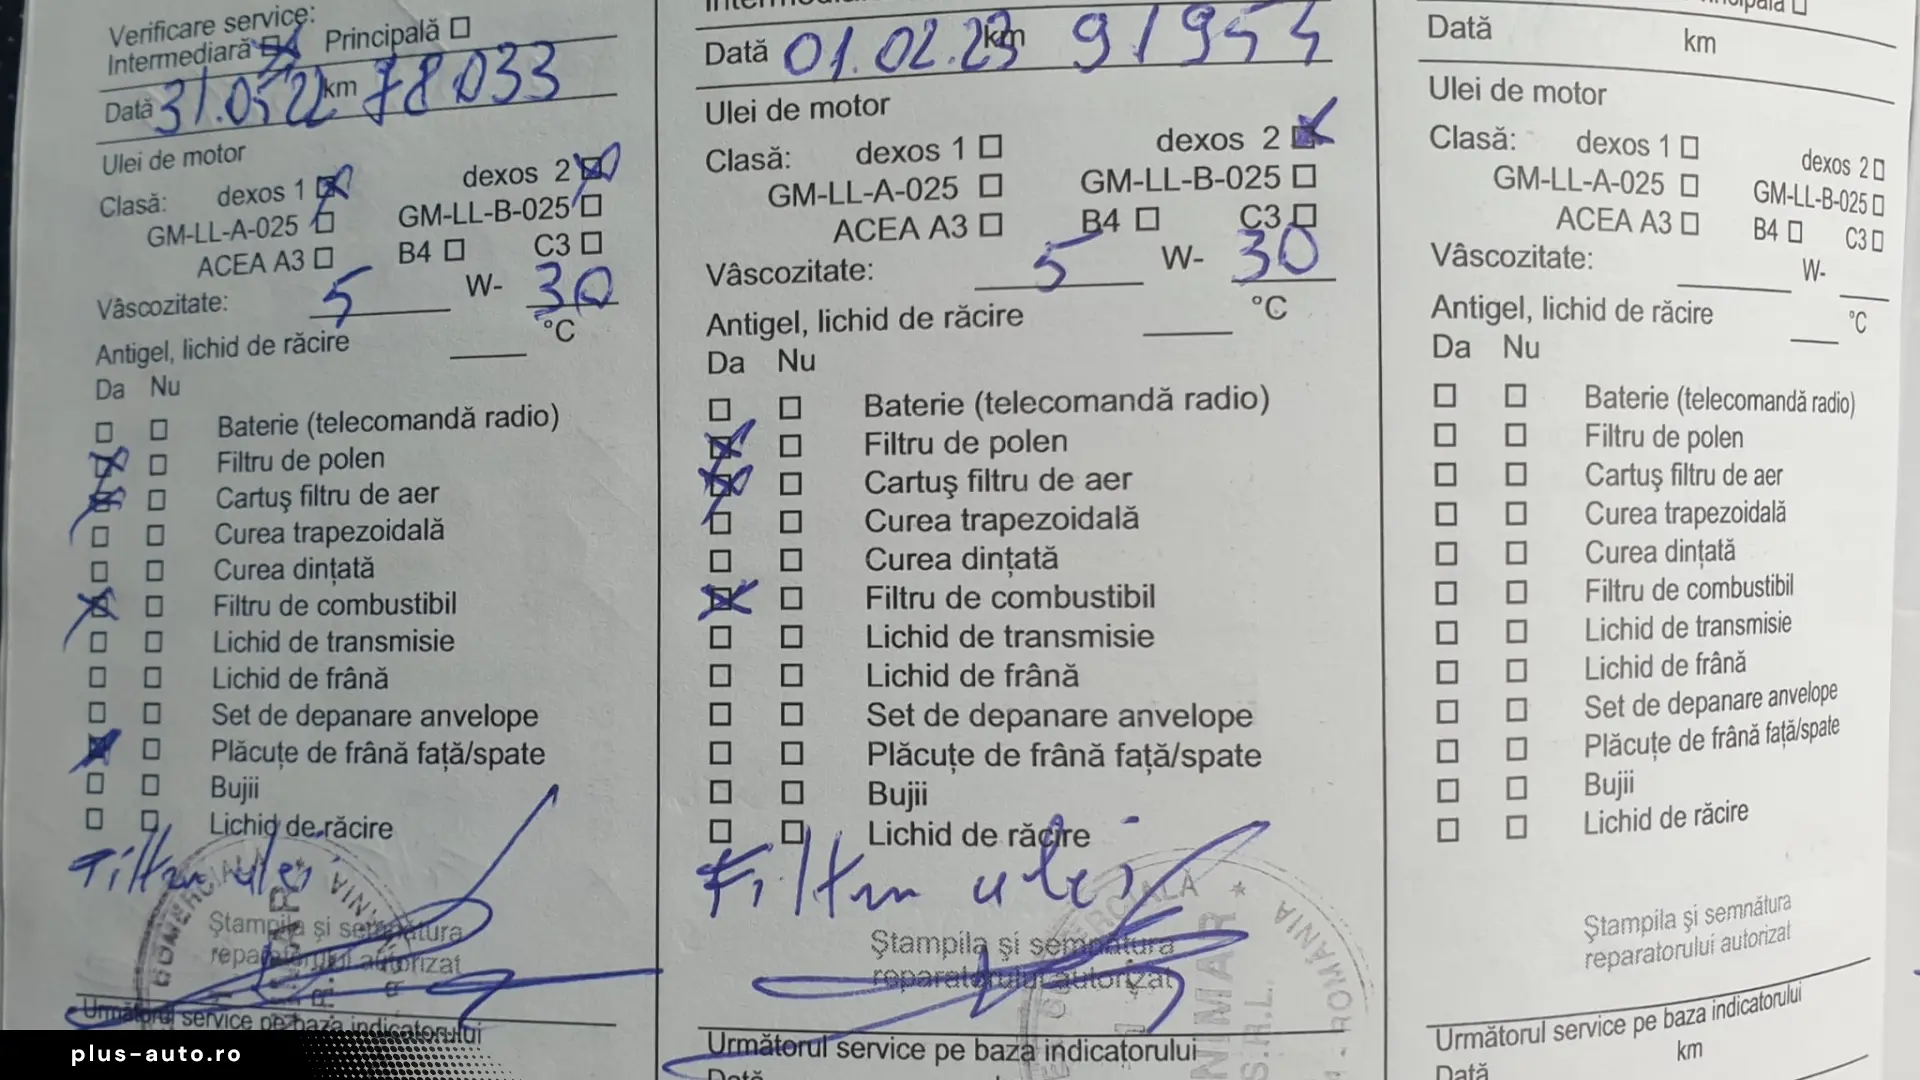 Verificare service:
Intermediară Principală
Dată 31.05.22 km 78033
Ulei de motor
Clasă: dexos 1 dexos 2
GM-LL-A-025 GM-LL-B-025
ACEA A3 B4 C3
Vâscozitate: 5 W- 30
Antigel, lichid de răcire °C
Da Nu
Baterie (telecomandă radio)
Filtru de polen
Cartuş filtru de aer
Curea trapezoidală
Curea dinţată
Filtru de combustibil
Lichid de transmisie
Lichid de frână
Set de depanare anvelope
Plăcuţe de frână faţă/spate
Bujii
Lichid de răcire
Filtru ulei
COMERCIALA
Ştampila şi semnătura
reparatorului autorizat
Următorul service pe baza indicatorului
Dată 01.02.23 km 91954
Ulei de motor
Clasă: dexos 1 dexos 2
GM-LL-A-025 GM-LL-B-025
ACEA A3 B4 C3
Vâscozitate: 5 W- 30
Antigel, lichid de răcire °C
Da Nu
Baterie (telecomandă radio)
Filtru de polen
Cartuş filtru de aer
Curea trapezoidală
Curea dinţată
Filtru de combustibil
Lichid de transmisie
Lichid de frână
Set de depanare anvelope
Plăcuţe de frână faţă/spate
Bujii
Lichid de răcire
Filtru ulei
Ştampila şi semnătura
reparatorului autorizat
S.R.L.
ROMÂNIA
Următorul service pe baza indicatorului
Dată
Dată km
Ulei de motor
Clasă: dexos 1 dexos 2
GM-LL-A-025 GM-LL-B-025
ACEA A3 B4 C3
Vâscozitate: W-
Antigel, lichid de răcire °C
Da Nu
Baterie (telecomandă radio)
Filtru de polen
Cartuş filtru de aer
Curea trapezoidală
Curea dinţată
Filtru de combustibil
Lichid de transmisie
Lichid de frână
Set de depanare anvelope
Plăcuţe de frână faţă/spate
Bujii
Lichid de răcire
Ştampila şi semnătura
reparatorului autorizat
Următorul service pe baza indicatorului
Dată km
plus-auto.ro